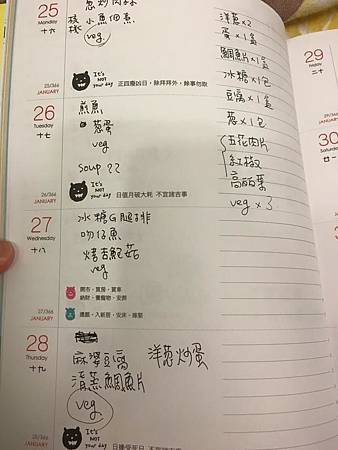 25
Monday
十六
蔥炒肉絲
小魚
veg
It's
NOT
your day
正四廢凶日，除拜拜外，餘事勿取
25/366
JANUARY
26
Tuesday
十七
煎魚
蔥蛋
veg
soup ??
It's
NOT
your day
日值月破大耗 不宜諸吉事
26/366
JANUARY
27
Wednesday
十八
冰糖G腿排
吻仔魚
烤杏鮑菇
veg
開市・買房・買車
納財・養寵物・安葬
27/366
JANUARY
28
Thursday
十九
麻婆豆腐 洋蔥炒蛋
清蒸鯛魚片
veg
It's
NOT
your day
日逢受死日 不宜諸吉事
28/366
JANUARY
洋蔥×2
蛋×1盒
鯛魚片×1盒
冰糖×1包
豆腐×1盒
蔥×1包
五花肉片
紅椒
高麗菜
veg × 3
29
Friday
二十
30
31